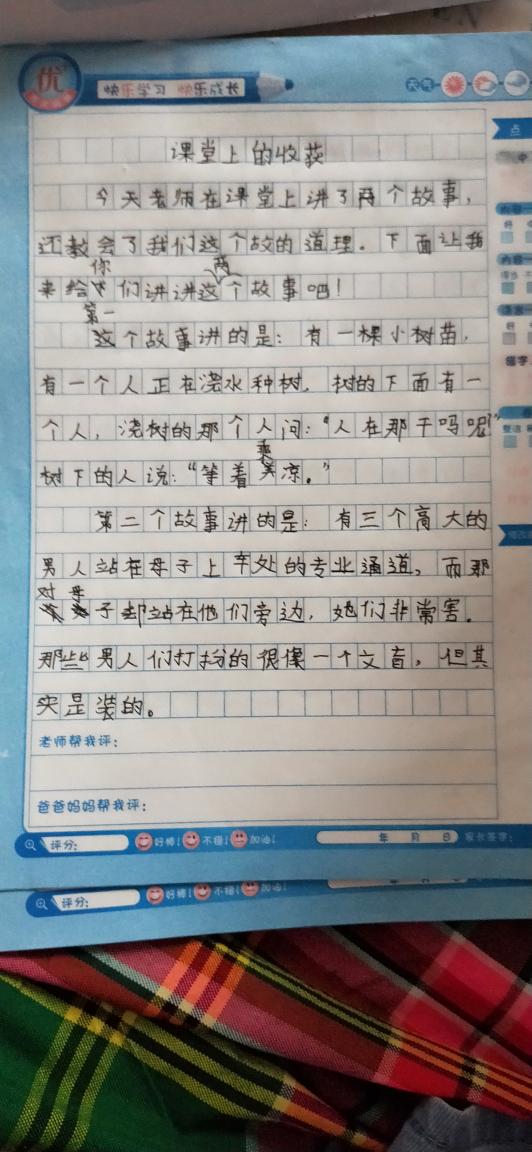 优
快乐学习 快乐成长
天气
点
课堂上的收获
今天老师在课堂上讲了两个故事,
还教会了我们这个故的道理。下面让我
来给你们讲讲这两个故事吧!
第一
这个故事讲的是:有一棵小树苗,
有一个人正在浇水种树,树的下面有一
个人,浇树的那个人问:“人在那干吗呢?”
树下的人说:“等着乘凉。”
第二个故事讲的是:有三个高大的
男人站在母子上车处的专业通道,而那
对母子却站在他们旁边,她们非常害。
那些男人们打扮的很像一个文盲,但其
实是装的。
老师帮我评:
爸爸妈妈帮我评:
评分:
好棒!
不错!
加油!
年 月 日
评分:
好棒!
不错!
加油!